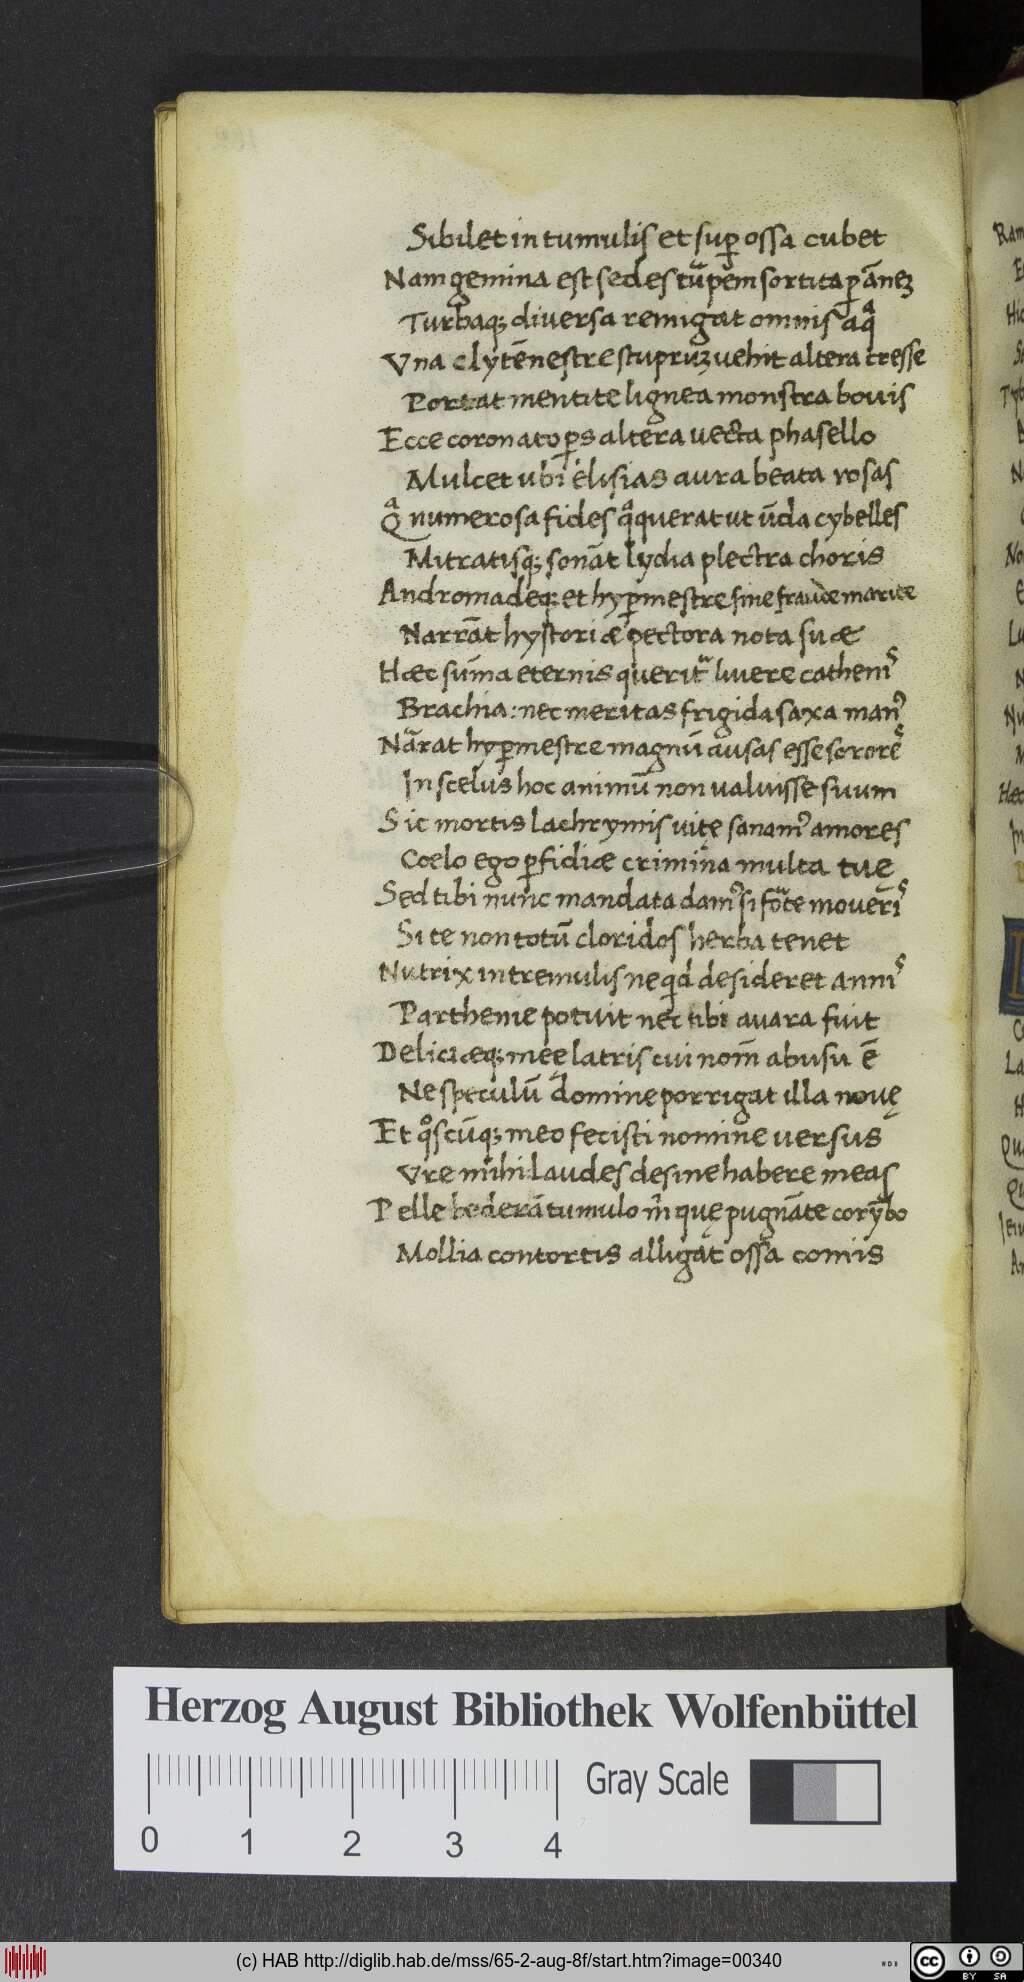 Sibilet in tumulis et sup̱ ossa cubet
Nam gemina est sedes tũpem sortita p̱ ãnez
Turbaq; diversa remigat omnis aqª
Vna clytẽnestre stupruz vehit altera cresse
Portat mentite lignea monstra bouis
Ecce coronato p̱s altera vecta phasello
Mulcet ubi elisias aura beata rosas
Qª numerosa fides qªqueratut ũda cybelles
Mitratisq; sonãt lydia plectra choris
Andromadeq; et hyp̱mestre sine fraude marite
Narrãt hystoriæ pectora nota suæ
Hæc sũma eternis querit᷑ livere cathenis
Brachia: nec meritas frigida saxa manꝰ
Nãrat hyp̱mestre magnũ ausas esse sorores
In scelus hoc animũ non valuisse suum
Sic mortis lachrymis vitę sanamꝰ amores
Cœlo ego p̱fidiæ crimina multa tuę
Sed tibi nunc mandata damꝰ si forte moveris
Si te non totũ cloridos herba tenet
Nutrix in tremulis ne qd desideret annis
Parthenie potuit nec tibi avara fuit
Deliciæq; meę latris cui nom̃ ab usu ẽ
Ne speculũ domine porrigat illa novę
Et qͦscũq; meo fecisti nomine versus
Vre mihi: laudes desine habere meas
Pelle hederã tumulo m̃ quę pugnãte corỹbo
Mollia contortis alligat ossa comis
Herzog August Bibliothek Wolfenbüttel
Gray Scale
0 1 2 3 4
(c) HAB http://diglib.hab.de/mss/65-2-aug-8f/start.htm?image=00340
cc BY SA